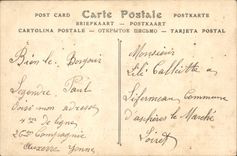 POST CARD Carte Postale POSTKARTE
BRIEFKAART POSTKAART
CARTOLINA POSTALE ОТКРЫТОЕ ПИСЬМО TARJETA POSTAL
Bien le Bonjour
Legendre Paul
Voici mon adresse
4me de ligne
26 Compagnie
Auxerre Yonne
Monsieur
a
Commune
d'aspères le Marché
Loiret